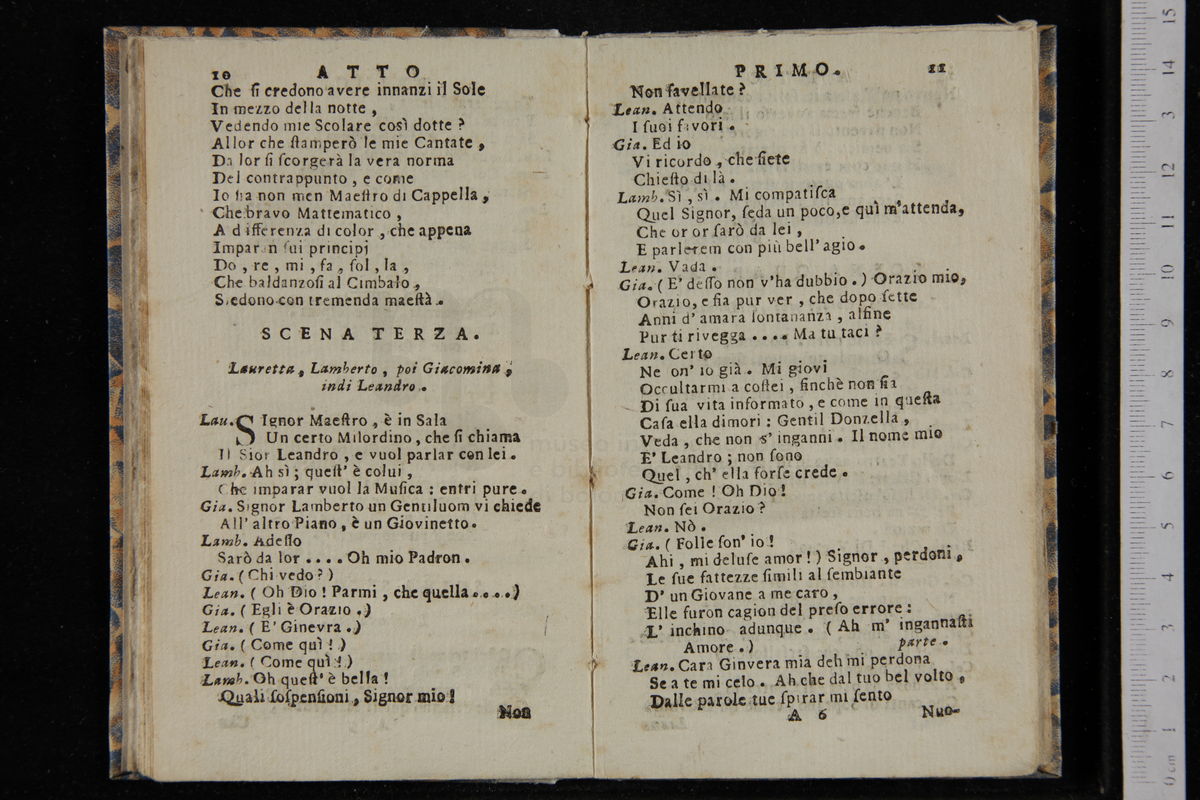 10 ATTO
Che ſi credono avere innanzi il Sole
In mezzo della notte ,
Vedendo mie Scolare così dotte ?
Allor che ſtamperò le mie Cantate ,
Da lor ſi ſcorgerà la vera norma
Del contrappunto , e come
Io ſia non men Maeſtro di Cappella ,
Che bravo Mattematico ,
A differenza di color , che appena
Imparan ſui principj
Do , re , mi , fa , ſol , la ,
Che baldanzoſi al Cimbalo ,
Siedono con tremenda maeſtà .
SCENA TERZA.
Lauretta , Lamberto , poi Giacomina ,
indi Leandro .
Lau. SIgnor Maeſtro , è in Sala
Un certo Milordino , che ſi chiama
Il Sior Leandro , e vuol parlar con lei .
Lamb. Ah sì ; queſt' è colui ,
Che imparar vuol la Muſica : entri pure .
Gia. Signor Lamberto un Gentiluom vi chiede
All' altro Piano , è un Giovinetto .
Lamb. Adeſſo
Sarò da lor . . . . Oh mio Padron .
Gia. ( Chi vedo ? )
Lean. ( Oh Dio ! Parmi , che quella . . . . )
Gia. ( Egli è Orazio . )
Lean. ( E' Ginevra . )
Gia. ( Come quì ! )
Lean. ( Come quì ! )
Lamb. Oh queſt' è bella !
Quali ſoſpenſioni , Signor mio !
Non
PRIMO. 11
Non favellate ?
Lean. Attendo
I ſuoi favori .
Gia. Ed io
Vi ricordo , che ſiete
Chieſto di là .
Lamb. Sì , sì . Mi compatiſca
Quel Signor, ſeda un poco, e quì m'attenda,
Che or or ſarò da lei ,
E parlerem con più bell' agio .
Lean. Vada .
Gia. ( E' deſſo non v'ha dubbio . ) Orazio mio,
Orazio, e fia pur ver , che dopo ſette
Anni d' amara lontananza , alfine
Pur ti rivegga . . . . Ma tu taci ?
Lean. Certo
Ne on' io già . Mi giovi
Occultarmi a coſtei , finchè non ſia
Di ſua vita informato , e come in queſta
Caſa ella dimori : Gentil Donzella ,
Veda , che non s' inganni . Il nome mio
E' Leandro ; non ſono
Quel , ch' ella forſe crede .
Gia. Come ! Oh Dio !
Non ſei Orazio ?
Lean. Nò .
Gia. ( Folle ſon' io !
Ahi , mi deluſe amor ! ) Signor , perdoni ,
Le ſue fattezze ſimili al ſembiante
D' un Giovane a me caro ,
Elle furon cagion del preſo errore :
L' inchino adunque . ( Ah m' ingannaſti
Amore . ) parte .
Lean. Cara Ginvera mia deh mi perdona
Se a te mi celo . Ah che dal tuo bel volto ,
Dalle parole tue ſpirar mi ſento
A 6 Nuo-